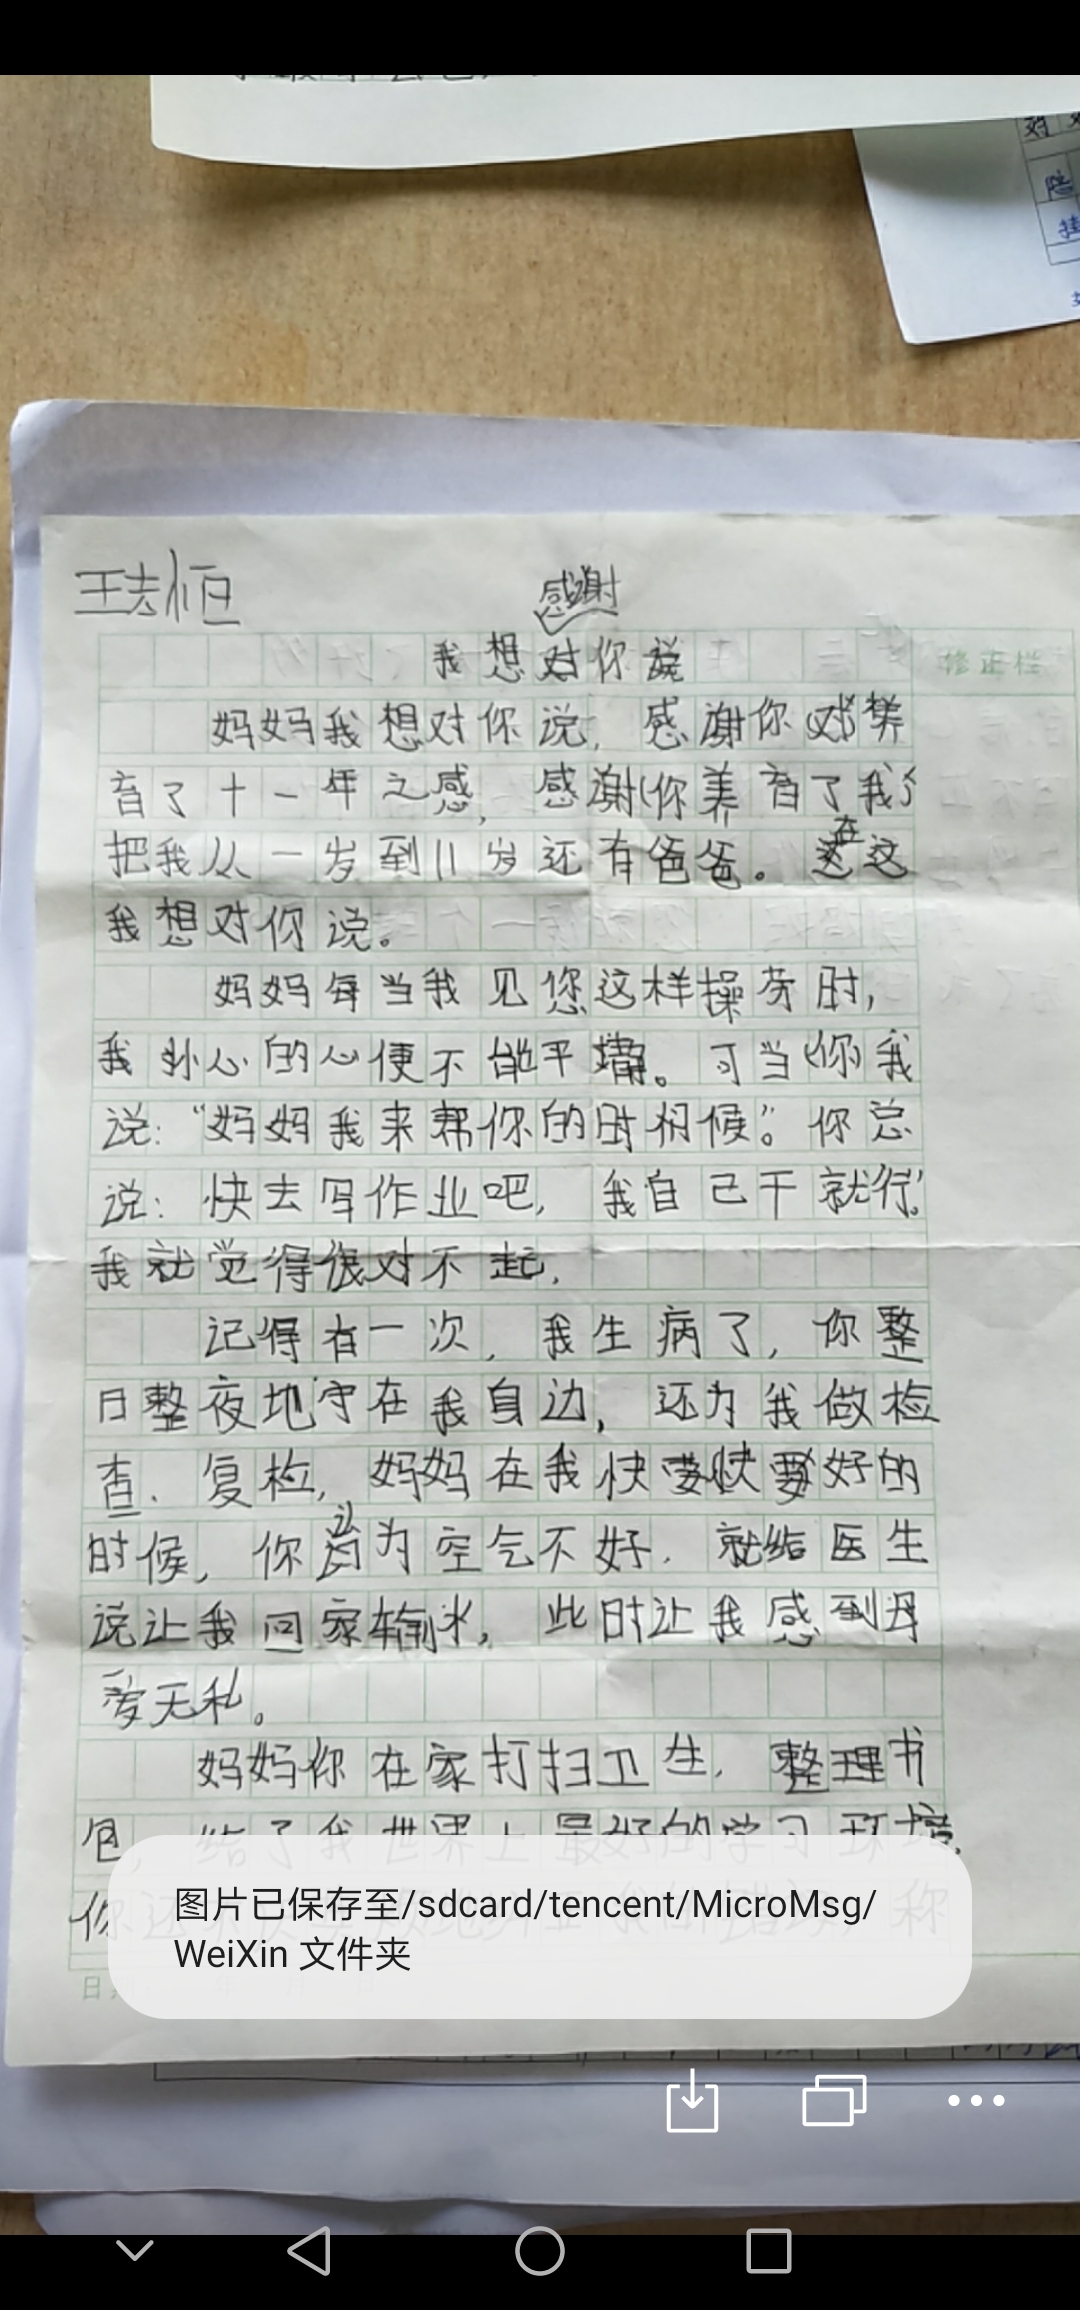 王志恒
感谢
我想对你说
修正栏
妈妈我想对你说，感谢你对养
育了十一年之感，感谢你养育了我
把我从一岁到11岁还有爸爸。在这
我想对你说。
妈妈每当我见您这样操劳时，
我 心的心便不能平静。可当你我
说：“妈妈我来帮你的时候”。你总
说：快去写作业吧，我自己干就行”。
我就觉得很对不起，
记得有一次，我生病了，你整
日整夜地守在我身边，还为我做检
查、复检，妈妈在我快要快要好的
时候，你认为空气不好，就给医生
说让我回家输水，此时让我感到母
爱无私。
妈妈你在家打扫卫生，整理书
包，给了我世界上最好的学习环境，
你还
日
图片已保存至/sdcard/tencent/MicroMsg/
WeiXin 文件夹